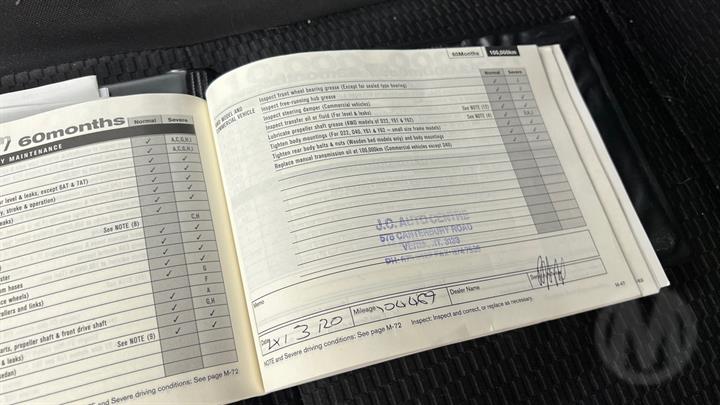 60months
Normal
Severe
Y MAINTENANCE
A,C,G,H,I
A,C,G,H,I
r level & leaks, except 6AT & 7AT)
y, stroke & operation)
eaks)
See NOTE (8)
C,H
ster
m hoses
G
ce wheels)
F
trollers and links)
A
G,H
arts, propeller shaft & front drive shaft
& leaks)
See NOTE (9)
edan)
and Severe driving conditions: See page M-72
60Months
100,000km
Normal
Severe
4WD MODEL AND
COMMERCIAL VEHICLE
Inspect front wheel bearing grease (Except for sealed type bearing)
Inspect free-running hub grease
Inspect steering damper (Commercial vehicles)
Inspect transfer oil or fluid (For level & leaks)
Lubricate propeller shaft grease (4WD models of D22, Y61 & Y62)
See NOTE (12)
Tighten body mountings (For D22, D40, Y61 & Y62 – small size frame models)
See NOTE (4)
Tighten rear body bolts & nuts (Wooden bed models only) and body mountings
Replace manual transmission oil at 100,000km (Commercial vehicles except D40)
J.C. AUTO CENTRE
CANTERBURY ROAD
3133
Memo
Date
Mileage
Dealer Name
NOTE and Severe driving conditions: See page M-72
Inspect: Inspect and correct, or replace as necessary.
M-47